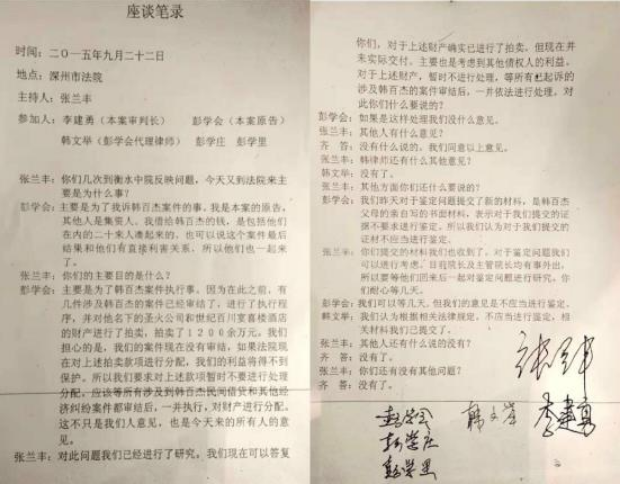 座谈笔录
时间：二〇一五年九月二十二日
地点：深州市法院
主持人：张兰丰
参加人：李建勇（本案审判长） 彭学会（本案原告）
韩文举（彭学会代理律师） 彭学庄 彭学里
张兰丰：你们几次到衡水中院反映问题，今天又到法院来主
要是为什么事？
彭学会：主要是为了我诉韩百杰案件的事。我是本案的原告，
其他人是集资人。我借给韩百杰的钱，是包括他们
在内的二十来人凑起来的，也可以说这个案件最后
结果和他们有直接利害关系，所以他们也一起来
了。
张兰丰：你们的主要目的是什么？
彭学会：主要是为了韩百杰案件执行事。因为在此之前，有
几件涉及韩百杰的案件已经审结了，进行了执行程
序，并对他名下的圣火公司和世纪百川宴喜楼酒店
的财产进行了拍卖，拍卖了1200余万元，我们
担心的是，我们的案件现在没有审结，如果法院现
在对上述拍卖款项进行分配，我们的利益将得不到
保护。所以我们要求对上述款项暂时不要进行处理
分配，应该等所有涉及到韩百杰民间借贷和其他经
济纠纷案件都审结后，一并执行，对财产进行分配。
这不只是我们人意见，也是今天来的所有人的意
见。
张兰丰：对此问题我们已经进行了研究。我们现在可以答复
你们，对于上述财产确实已进行了拍卖。但现在并
未实际交付。主要也是考虑到其他债权人的利益。
对于上述财产，暂时不进行处理，等所有已起诉的
涉及韩百杰的案件审结后，一并依法进行处理。对
此你们什么要说的？
彭学会：如果是这样处理我们没什么意见。
张兰丰：其他人有什么意见？
齐 答：没有什么说的。我们同意以上意见。
张兰丰：韩律师还有什么其他意见？
韩文举：没有了。
张兰丰：其他方面你们还什么要说的？
彭学会：我们昨天对于鉴定问题提交了新的材料，是韩百杰
父母的亲自写的书面材料，表示对于我们提交的证
据不要求进行鉴定。所以我们认为对于我们提交的
证材不应当进行鉴定。
张兰丰：你们提交的材料我们也收到了，对于鉴定问题我们
可以进行考虑。目前院长及主管院长均有事外出，
所以要等他们回来后一起对鉴定问题进行研究。你
们耐心等几天。
彭学会：我们可以等几天。但我们的意见是不应当进行鉴定。
韩文举：我们认为根据相关法律规定，不应当进行鉴定，相
关材料我们已提交了。
张兰丰：其他人还有什么说的没有？
齐 答：没有了。
张兰丰：你们还有没有其他问题？
齐 答：没有了。
彭学会 韩文举 李建勇
彭学庄
彭学里